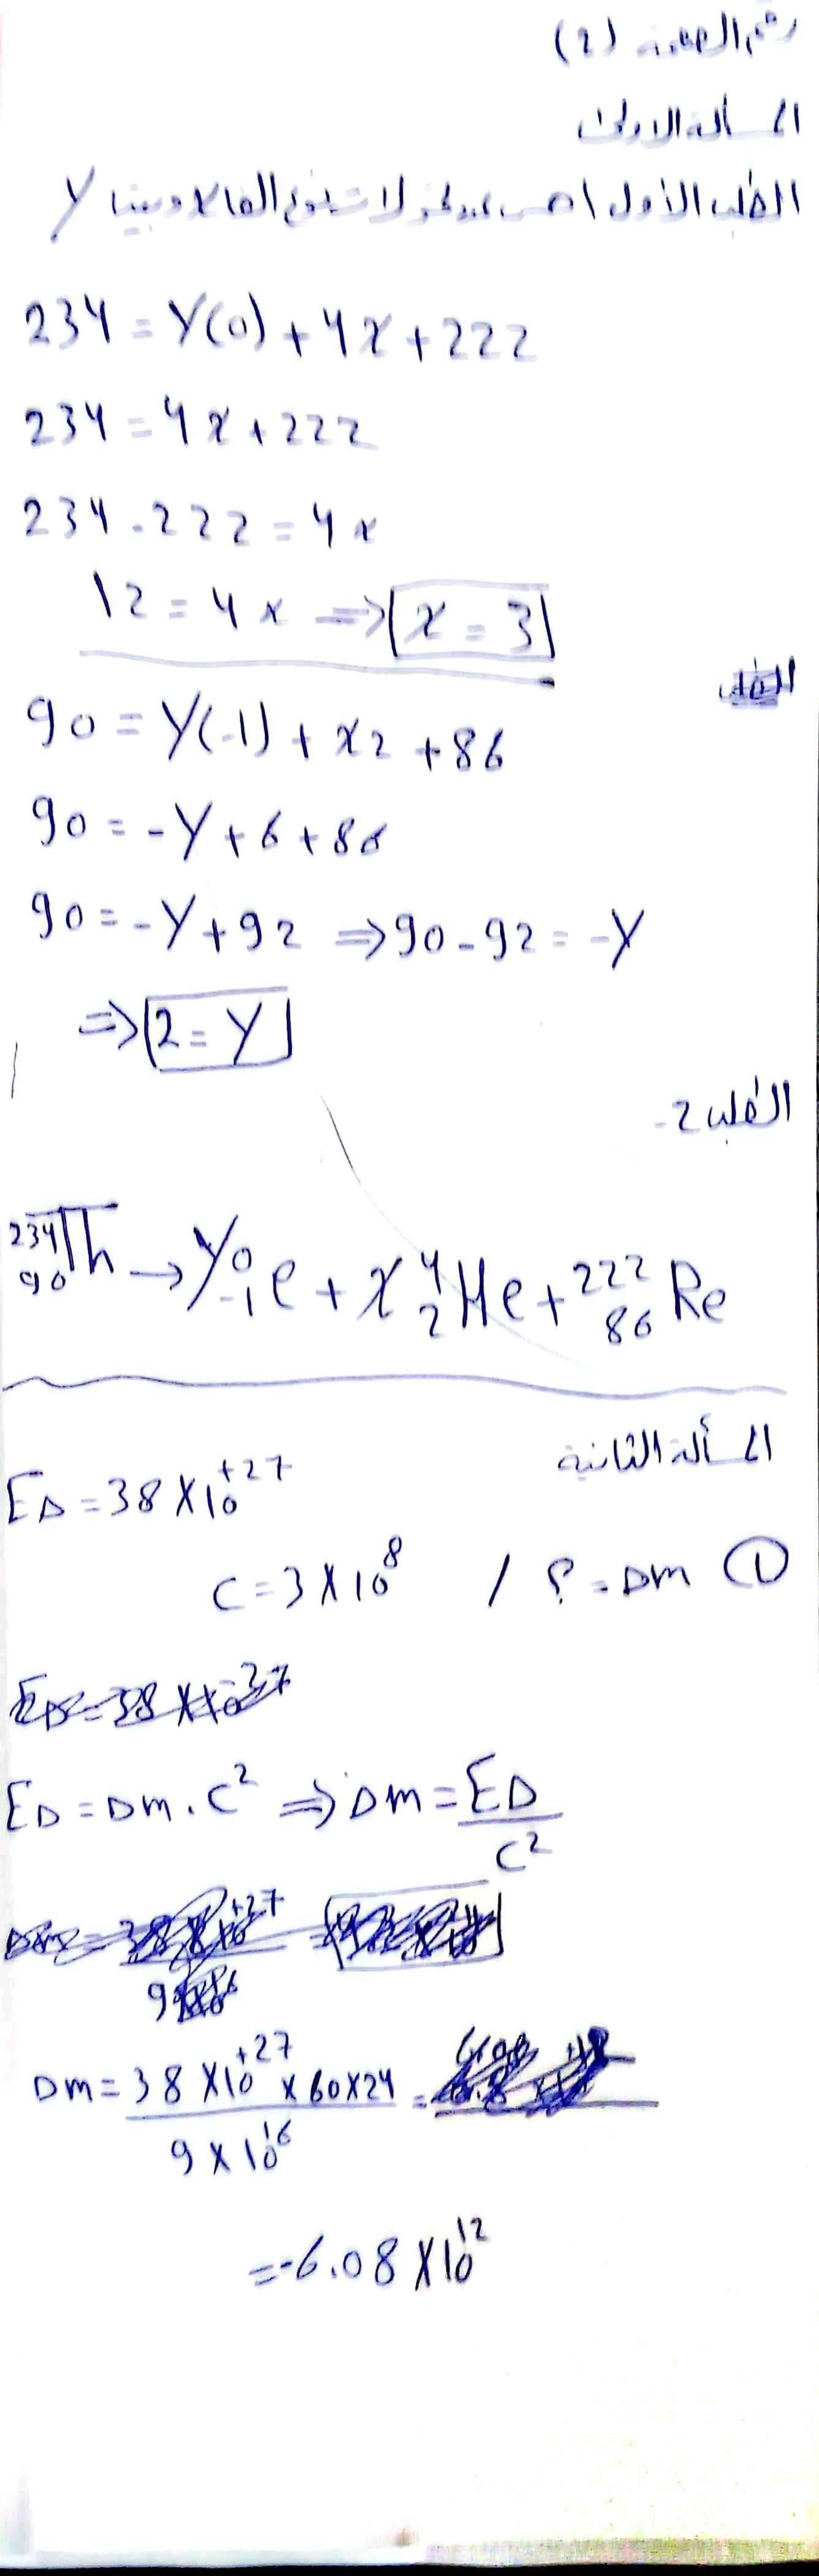 رقم الصفحة (2)
المسألة الاولى
الطلب الأول
234 = Y(0) + 4x + 222
234 = 4x + 222
234 - 222 = 4x
12 = 4x ⇒ x = 3
90 = Y(-1) + x2 + 86
90 = -Y + 6 + 86
90 = -Y + 92 ⇒ 90 - 92 = -Y
⇒ 2 = Y
الطلب 2-
²³⁴₉₀Th → Y ⁰₋₁e + x ⁴₂He + ²²²₈₆Re
المسألة الثانية
E∆ = 38 × 10⁺²⁷
① ∆m = ؟ / C = 3 × 10⁸
E∆ = ∆m . C² ⇒ ∆m = E∆ / C²
∆m = 38 × 10⁺²⁷ × 60 × 24 / 9 × 10¹⁶ =
= -6.08 × 10¹²